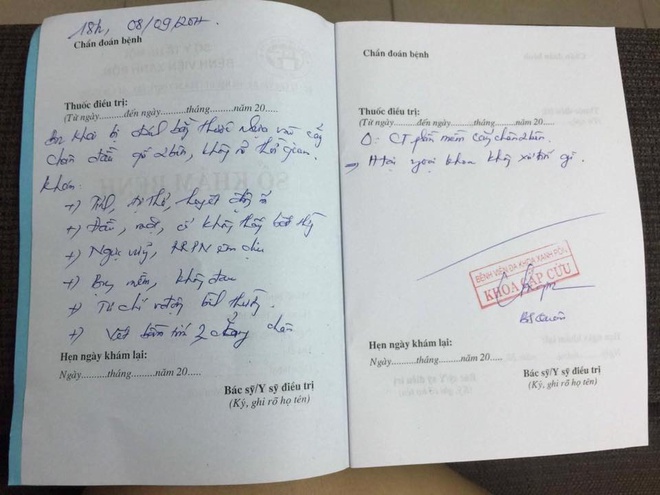 18h, 08/09/2017
Chẩn đoán bệnh
Thuốc điều trị:
(Từ ngày..........đến ngày..........tháng..........năm 20.....
Bn khai bị đánh bằng thước nhựa vào cẳng
chân, đầu gối 2 bên, không rõ thời gian.
Khám:
+) Tỉnh, tự thở, huyết động ổn
+) Đầu, mặt, cổ không thấy bất thg
+) Ngực vững, RRPN êm dịu
+) Bụng mềm, không đau
+) Tứ chi vận động bình thường
+) Vết bầm tím 2 cẳng chân
Hẹn ngày khám lại:
Ngày..........tháng..........năm 20.....
Bác sỹ/Y sỹ điều trị
(Ký, ghi rõ họ tên)
Chẩn đoán bệnh
Thuốc điều trị:
(Từ ngày..........đến ngày..........tháng..........năm 20.....
CT phần mềm cẳng chân 2 bên
Hiện tại ngoại khoa không xử trí gì.
BỆNH VIỆN ĐA KHOA XANH PÔN
KHOA CẤP CỨU
BS Quân
Hẹn ngày khám lại:
Ngày..........tháng..........năm 20.....
Bác sỹ/Y sỹ điều trị
(Ký, ghi rõ họ tên)